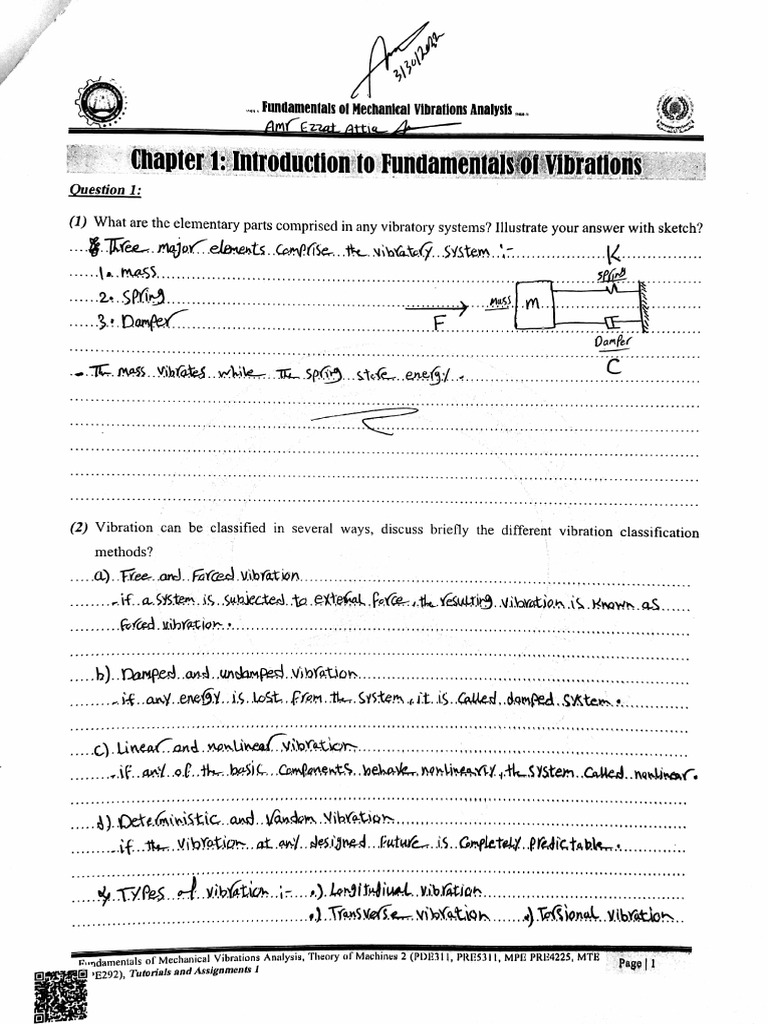 3/30/2022
Fundamentals of Mechanical Vibrations Analysis
Amr Ezzat Attia
Chapter 1: Introduction to Fundamentals of Vibrations
Question 1:
(1) What are the elementary parts comprised in any vibratory systems? Illustrate your answer with sketch?
Three major elements comprise the vibratory system :-
K
1. mass
spring
2. spring
mass
m
3. Damper
F
Damper
C
- Th mass vibrates while the spring store energy.
(2) Vibration can be classified in several ways, discuss briefly the different vibration classification
methods?
a) Free and Forced vibration
- if a system is subjected to external force, the resulting vibration is known as
forced vibration.
b) Damped and undamped vibration
- if any energy is lost from the system, it is called damped system.
c) Linear and nonlinear vibration
- if any of the basic components behave nonlinearly, th system called nonlinear.
d) Deterministic and Random vibration
if the vibration at any designed future is completely predictable.
Types of vibration :- .) Longitudiual vibration
.) Transverse vibration .) Torsional vibration
Fundamentals of Mechanical Vibrations Analysis, Theory of Machines 2 (PDE311, PRE5311, MPE PRE4225, MTE
PE292), Tutorials and Assignments 1
Page | 1